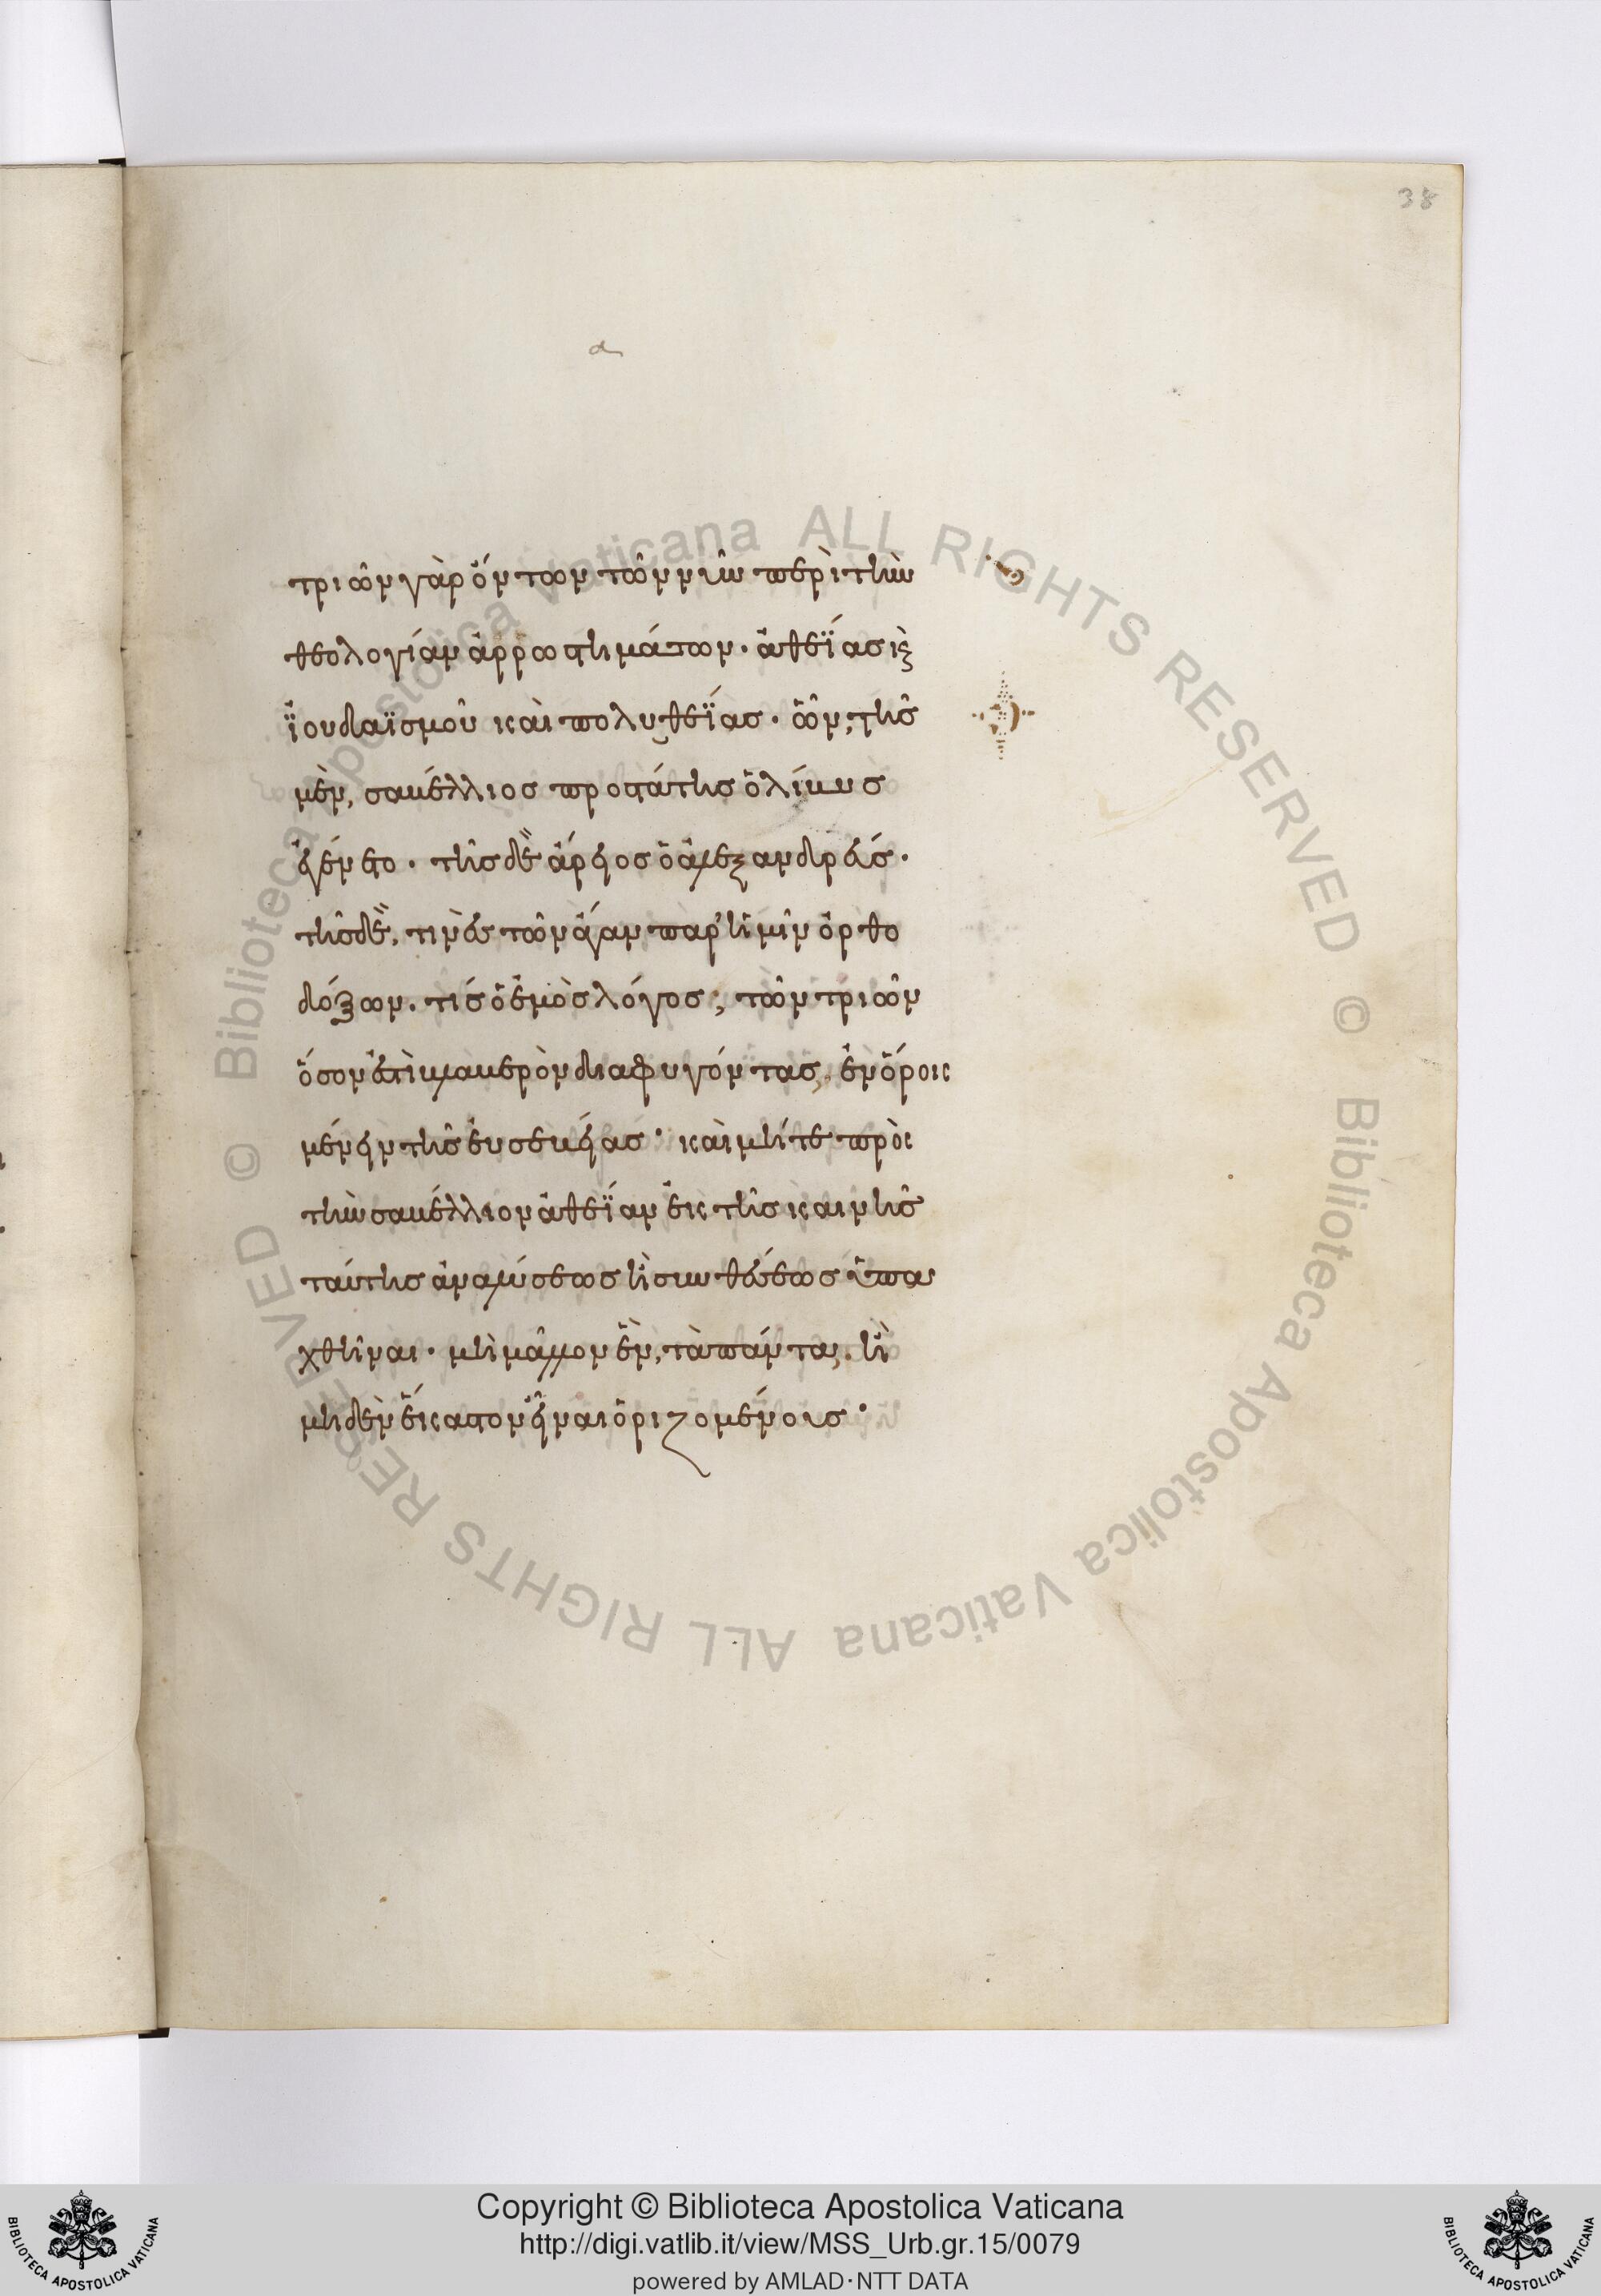 38
α
τριῶν γὰρ ὄντων τῶν νῦν περὶ τὴν
θεολογίαν ἀρρωστημάτων· ἀθεΐας κ(αὶ)
ἰουδαϊσμοῦ καὶ πολυθεΐας· ὧν, τῆς
μὲν, σαβέλλιος προστάτης ὁ λίβυς
ἐγένετο· τῆς δὲ ἄρειος ὁ ἀλεξανδρεύς·
τῆς δὲ, τινὲς τῶν ἄγαν παρ' ἡμῖν ὀρθο
δόξων. τίς ὁ ἐμὸς λόγος; τῶν τριῶν
ὅσον ἐστὶ βλαβερὸν διαφυγόντας, ἐν ὅροις
μένειν τῆς εὐσεβείας· καὶ μήτε πρὸς
τὴν σαβέλλιον ἀθεΐαν ἐκ τῆς καινῆς
ταύτης ἀναλύσεως ἢ συνθέσεως ὑπα
χθῆναι· μὴ μᾶλλον ἓν, τὰ πάντα, ἢ
μηδὲν ἕκαστον εἶναι ὁριζομένους·
Copyright © Biblioteca Apostolica Vaticana
http://digi.vatlib.it/view/MSS_Urb.gr.15/0079
powered by AMLAD·NTT DATA
BIBLIOTECA APOSTOLICA VATICANA
BIBLIOTECA APOSTOLICA VATICANA
© Biblioteca Apostolica Vaticana ALL RIGHTS RESERVED
© Biblioteca Apostolica Vaticana ALL RIGHTS RESERVED